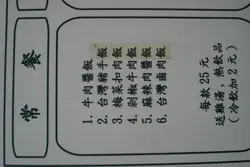 常餐
1. 牛肉醬飯
2. 台灣豬手飯
3. 梅菜扣肉飯
4. 剁椒牛肉飯
5. 麻辣肉醬飯
6. 台灣鹵肉飯
每款25元
送雞湯，熱飲品
(冷飲加2元)